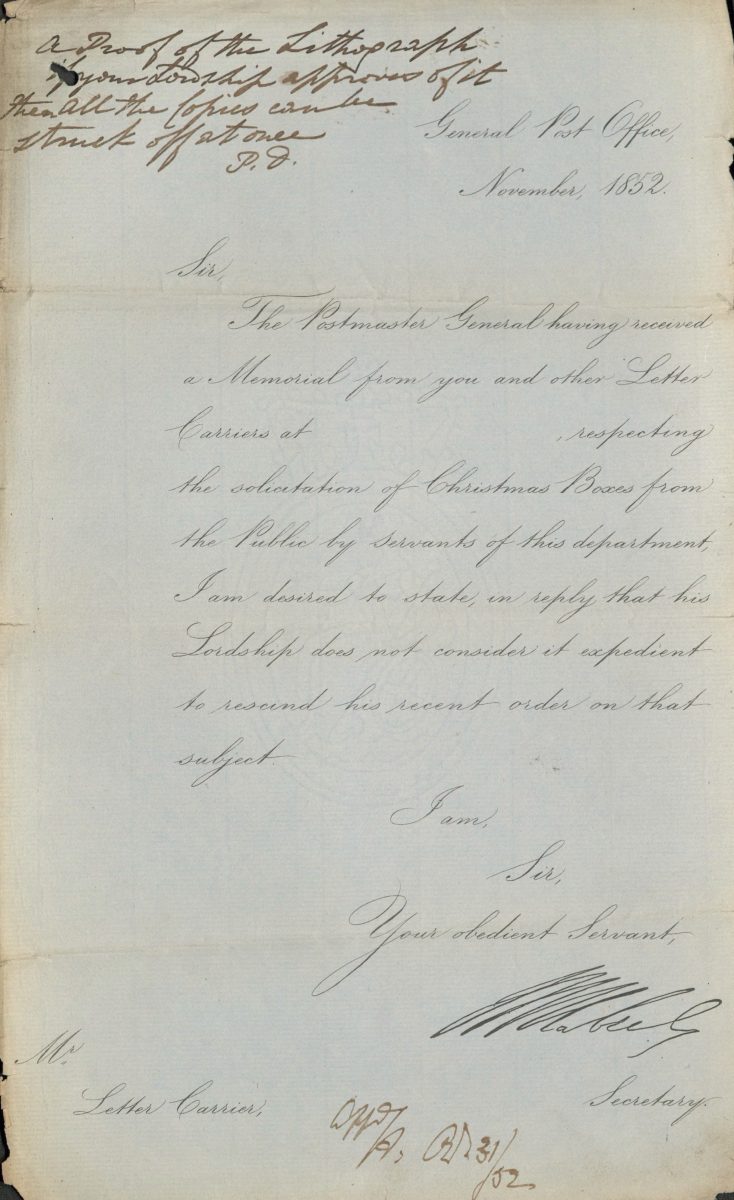 A Proof of the Lithograph
if your Lordship approves of it
then all the Copies can be
struck off at once
P.D.
General Post Office,
November, 1852.
Sir,
The Postmaster General having received
a Memorial from you and other Letter
Carriers at , respecting
the solicitation of Christmas Boxes from
the Public by servants of this department,
I am desired to state, in reply that his
Lordship does not consider it expedient
to rescind his recent order on that
subject.
I am,
Sir,
Your obedient Servant,
Mr.
Secretary.
Letter Carrier,